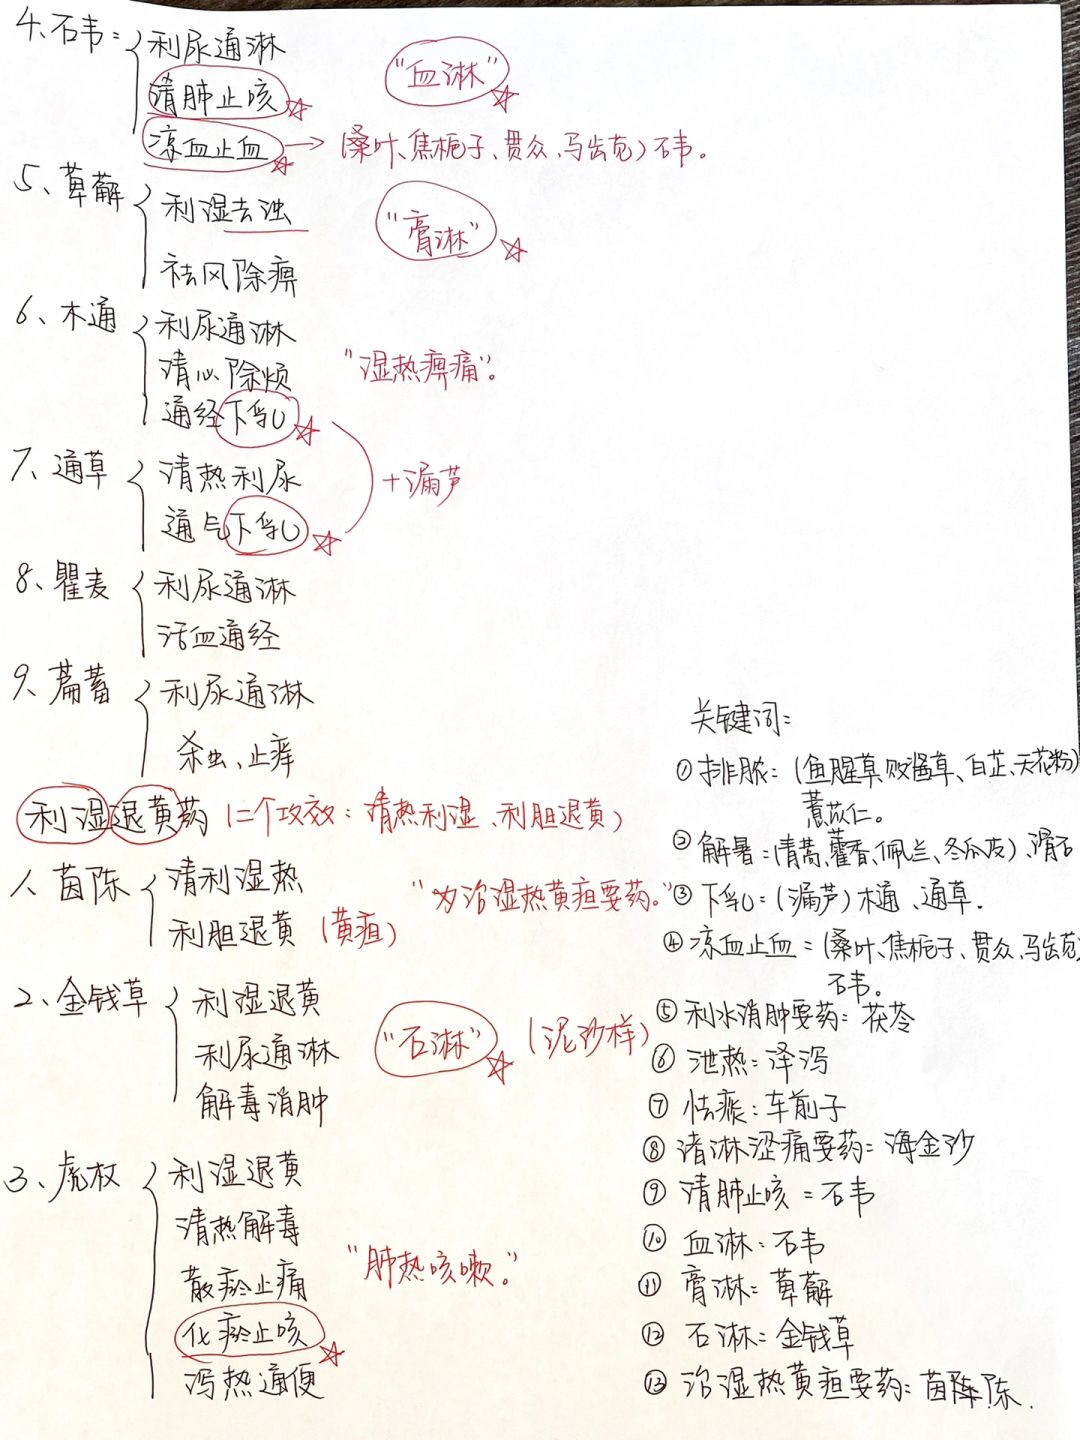 4、石韦：利尿通淋
清肺止咳 "血淋"
凉血止血 → (桑叶、焦栀子、贯众、马齿苋) 石韦。
5、萆薢 利湿去浊 "膏淋"
祛风除痹
6、木通 利尿通淋
清心除烦 "湿热痹痛"。
通经下乳
7、通草 清热利尿 +漏芦
通气下乳
8、瞿麦 利尿通淋
活血通经
9、萹蓄 利尿通淋
杀虫、止痒
利湿退黄药 (二个功效：清热利湿、利胆退黄)
1、茵陈 清利湿热 "为治湿热黄疸要药。"
利胆退黄 (黄疸)
2、金钱草 利湿退黄
利尿通淋 "石淋" (泥沙样)
解毒消肿
3、虎杖 利湿退黄
清热解毒
散瘀止痛 "肺热咳嗽。"
化瘀止咳
泻热通便
关键词：
①排脓：(鱼腥草、败酱草、白芷、天花粉)
薏苡仁。
②解暑：(青蒿、藿香、佩兰、冬瓜皮)、滑石
③下乳：(漏芦) 木通、通草.
④凉血止血=(桑叶、焦栀子、贯众、马齿苋)
石韦。
⑤利水消肿要药：茯苓
⑥泄热：泽泻
⑦怯痰：车前子
⑧诸淋涩痛要药：海金沙
⑨清肺止咳=石韦
⑩血淋：石韦
⑪膏淋：萆薢
⑫石淋：金钱草
⑬治湿热黄疸要药：茵陈.